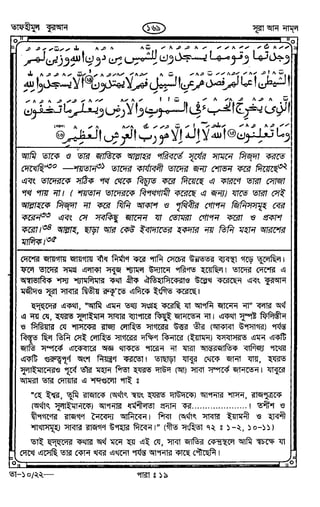 তাফহীমুল কুরআন
১৬৯
সূরা আন নামল
وَجَدْتُّهَا وَقَوْمَهَا يَسْجُدُوْنَ لِلشَّمْسِ مِنْ دُوْنِ اللّٰهِ وَزَيَّنَ لَهُمُ
الشَّيْطٰنُ اَعْمَالَهُمْ فَصَدَّهُمْ عَنِ السَّبِيْلِ فَهُمْ لَا يَهْتَدُوْنَ ۞ اَلَّا يَسْجُدُوْا لِلّٰهِ
الَّذِيْ يُخْرِجُ الْخَبْءَ فِي السَّمٰوٰتِ وَالْاَرْضِ وَيَعْلَمُ مَا تُخْفُوْنَ
وَمَا تُعْلِنُوْنَ ۞ اَللّٰهُ لَا اِلٰهَ اِلَّا هُوَ رَبُّ الْعَرْشِ الْعَظِيْمِ ۞
আমি তাকে ও তার জাতিকে আল্লাহর পরিবর্তে সূর্যের সামনে সিজদা করতে
দেখেছি"৩০ —শয়তান৩১ তাদের কার্যাবলী তাদের জন্য শোভন করে দিয়েছে৩২
এবং তাদেরকে সঠিক পথ থেকে বিচ্যুত করে দিয়েছে এ কারণে তারা সোজা
পথ পায় না। (শয়তান তাদেরকে বিপথগামী করেছে এ জন্য) যাতে তারা সেই
আল্লাহকে সিজদা না করে যিনি আকাশ ও পৃথিবীর গোপন জিনিসসমূহ বের
করেন৩৩ এবং সে সবকিছু জানেন যা তোমরা গোপন করো ও প্রকাশ
করো।৩৪ আল্লাহ, ছাড়া আর কেউ ইবাদাতের হকদার নয় তিনি মহান আরশের
মালিক।৩৫
দেশের জায়গায় জায়গায় বাঁধ নির্মাণ করে পানি সেচের উন্নততর ব্যবস্থা গড়ে তুলেছিল।
ফলে তাদের সমগ্র এলাকা সবুজ শ্যামল উদ্যানে পরিণত হয়েছিল। তাদের দেশের এ
অস্বাভাবিক শস্য শ্যামলিমার কথা গ্রীক ঐতিহাসিকরাও উল্লেখ করেছেন এবং কুরআন
মজীদও সূরা সাবার দ্বিতীয় রুকু'তে এদিকে ইংগিত করেছে।
হুদহুদের একথা, "আমি এমন তথ্য সংগ্রহ করেছি যা আপনি জানেন না" বলার অর্থ
এ নয় যে, হযরত সুলাইমান সাবার ব্যাপারে কিছুই জানতেন না। একথা সুস্পষ্ট ফিলিস্তিন
ও সিরিয়ার যে শাসকের রাজ্য লোহিত সাগরের উত্তর তীর (আকাবা উপসাগর) পর্যন্ত
বিস্তৃত ছিল তিনি সেই লোহিত সাগরের দক্ষিণ কিনারে (ইয়ামন) বসবাসরত এমন একটি
জাতি সম্পর্কে একেবারে অজ্ঞ থাকতে পারেন না যারা আন্তর্জাতিক বাণিজ্য পথের
একটি গুরুত্বপূর্ণ অংশ নিয়ন্ত্রণ করতো। তাছাড়া যাবুর থেকে জানা যায়, হযরত
সুলাইমানেরও পূর্বে তাঁর মহান পিতা হযরত দাউদ (আ) সাবা সম্পর্কে জানতেন। যাবুরে
আমরা তাঁর দোয়ার এ শব্দগুলো পাই ঃ
"হে ঈশ্বর, তুমি রাজাকে (অর্থাৎ স্বয়ং হযরত দাউদকে) আপনার শাসন, রাজপুত্রকে
(অর্থাৎ সুলাইমানকে) আপনার ধর্মশীলতা প্রদান কর.....................। তর্শীশ ও
দ্বীপগণের রাজগণ নৈবেদ্য আনিবেন। শিবা (অর্থাৎ সাবার ইয়ামনী ও হাবশী
শাখাসমূহ) সাবার রাজগণ উপহার দিবেন।" (গীত সংহিতা ৭২ ঃ ১-২, ১০-১১)
তাই হুদহুদের কথার অর্থ মনে হয় এই যে, সাবা জাতির কেন্দ্রস্থলে আমি স্বচক্ষে যা
দেখে এসেছি তার কোন খবর এখনো পর্যন্ত আপনার কাছে পৌঁছেনি।
তা-১০/২২—
পারা ঃ ১৯